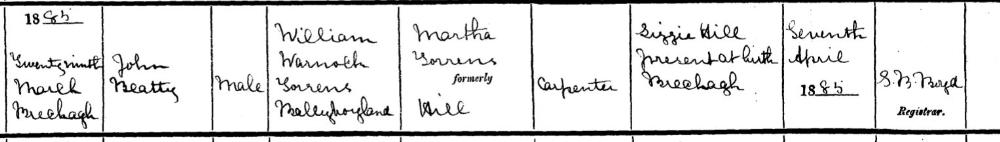 1885
Twentyninth
March
Breckagh
John
Beatty
Male
William
Warnock
Torrens
Ballyhoyland
Martha
Torrens
formerly
Hill
Carpenter
Lizzie Hill
present at birth
Breckagh
Seventh
April
1885
S. B. Boyd
Registrar.